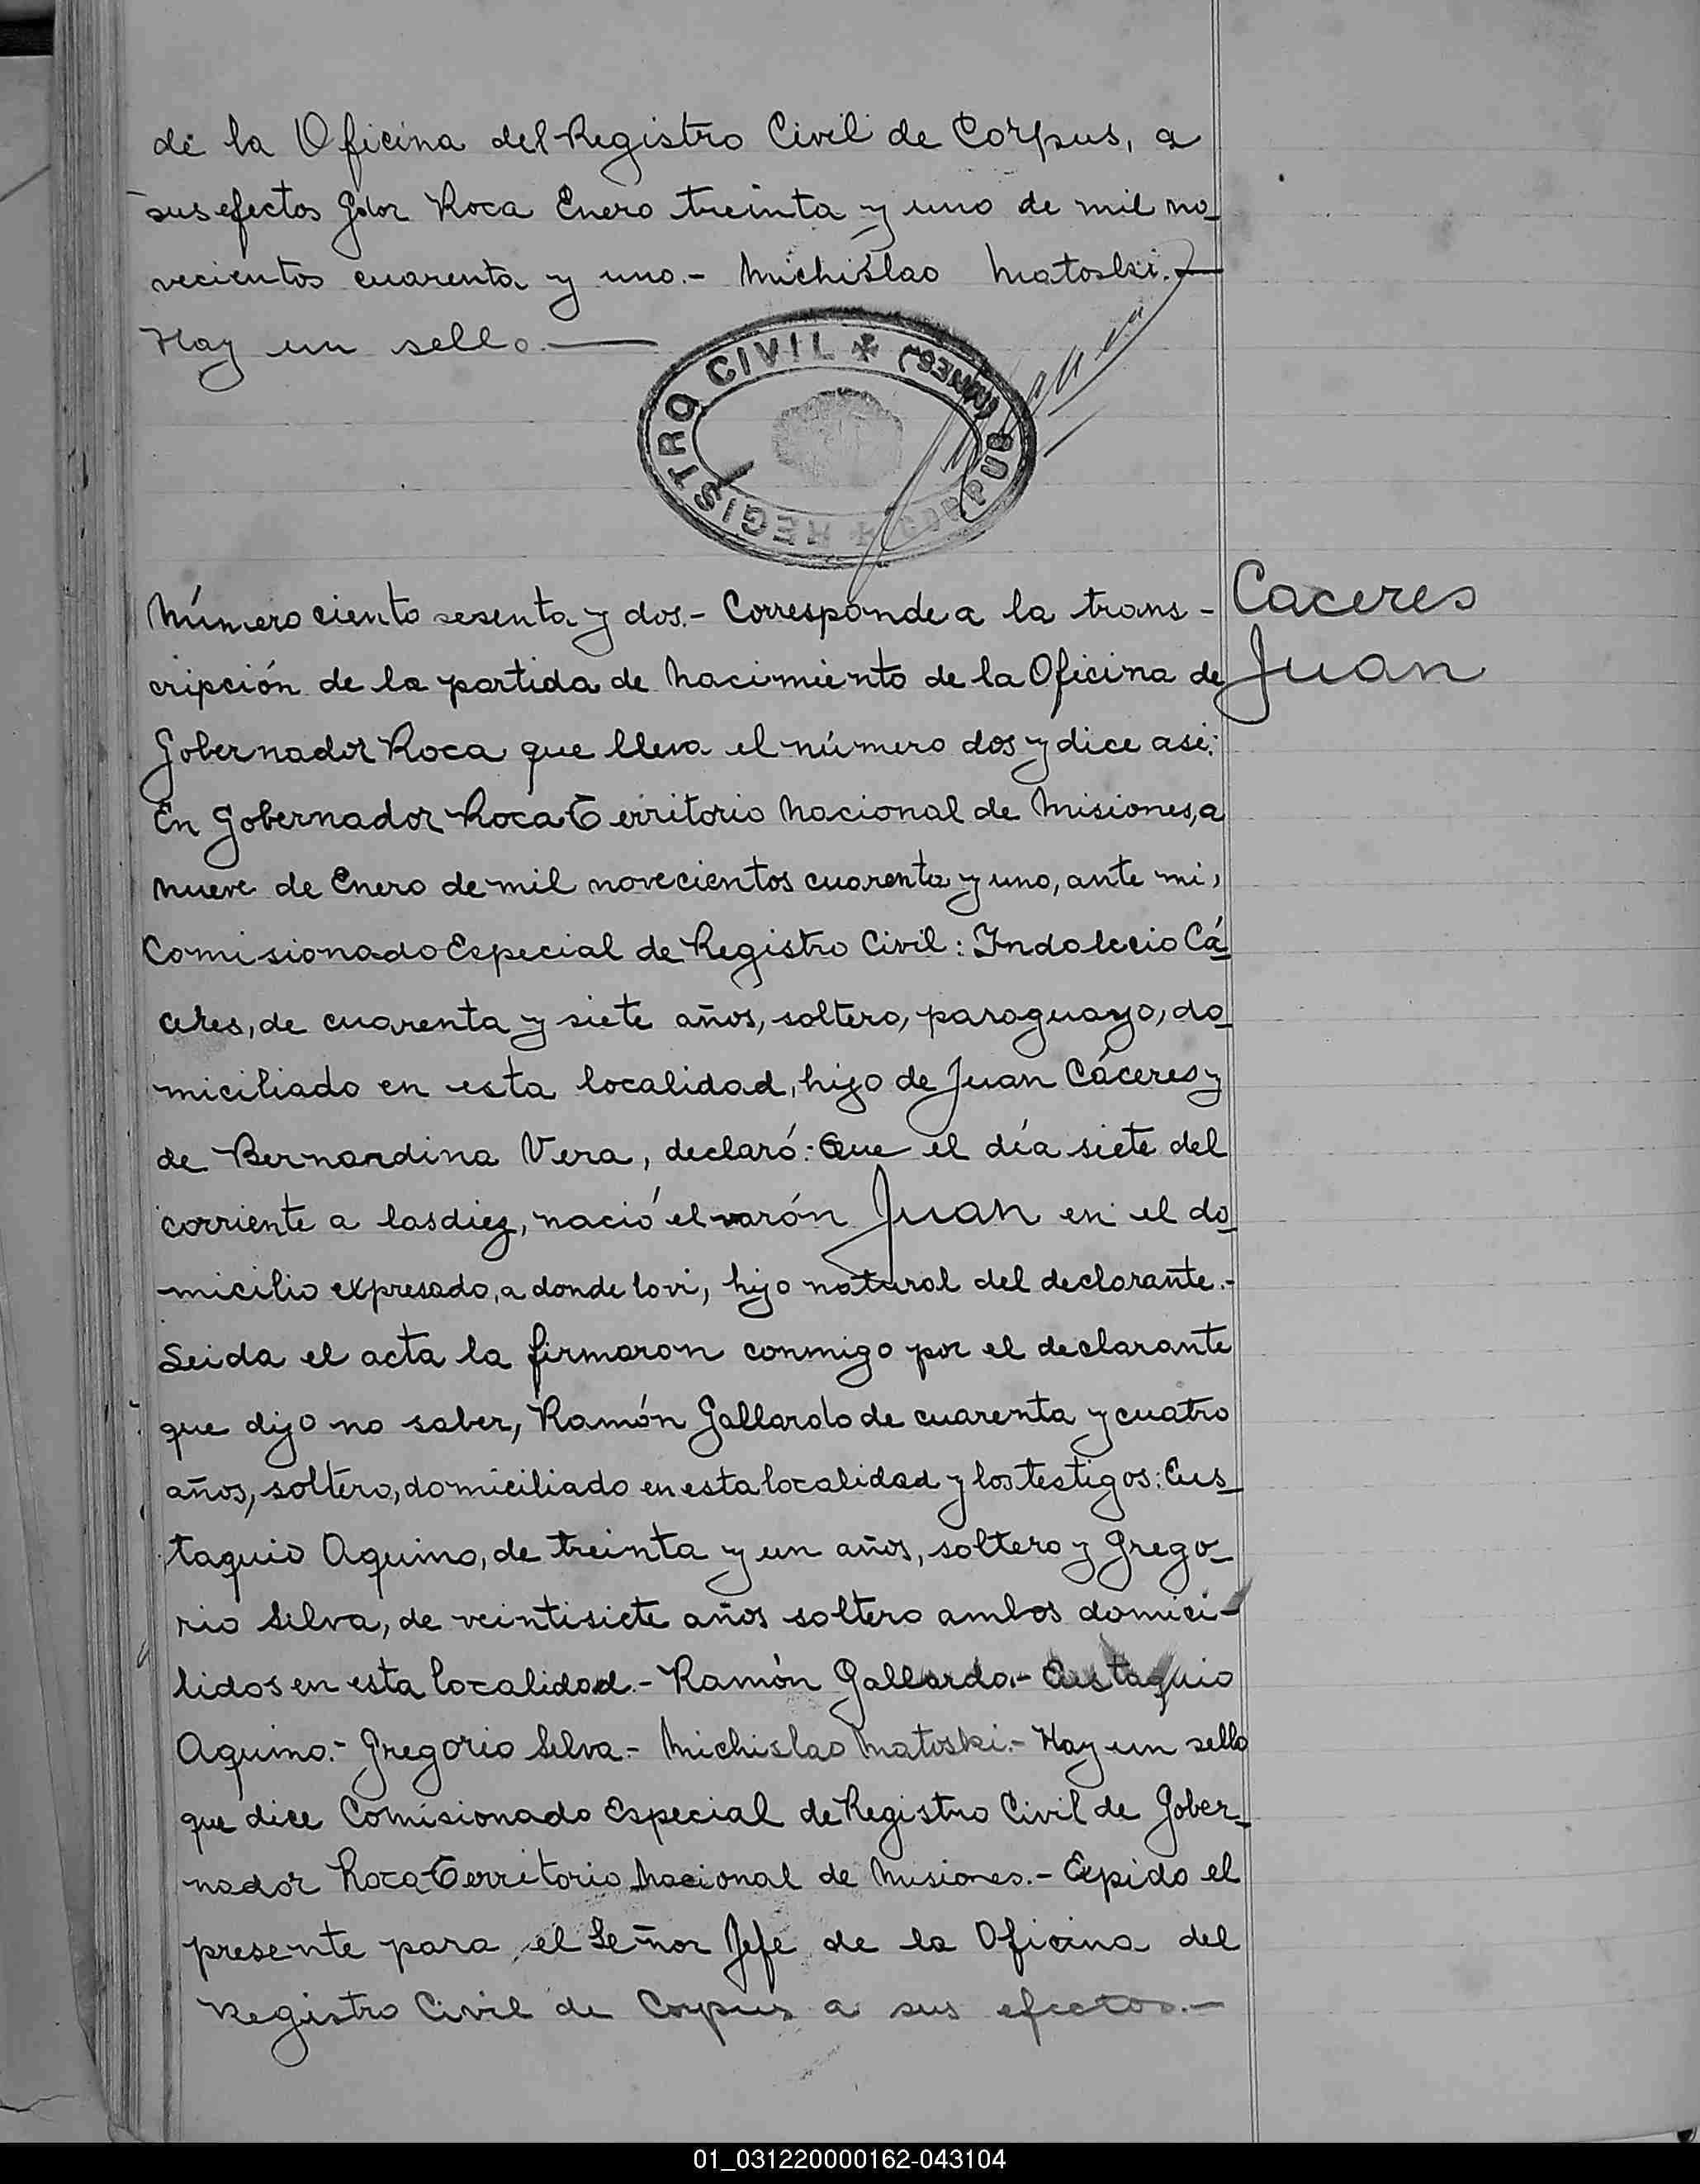 de la Oficina del Registro Civil de Corpus, a
sus efectos Gdor Roca Enero treinta y uno de mil no_
vecientos cuarenta y uno.- Michislao Matoski.-
Hay un sello.-
REGISTRO CIVIL ✠ CORPUS (MNES) ✠
Número ciento sesenta y dos.- Corresponde a la trans-
cripción de la partida de Nacimiento de la Oficina de
Gobernador Roca que lleva el número dos y dice asi:
En Gobernador Roca Territorio Nacional de Misiones, a
nueve de Enero de mil novecientos cuarenta y uno, ante mi,
Comisionado Especial de Registro Civil: Indalecio Cá_
ceres, de cuarenta y siete años, soltero, paraguayo, do_
miciliado en esta localidad, hijo de Juan Cáceres y
de Bernardina Vera, declaró:- Que el día siete del
corriente a las diez, nació el varón Juan en el do_
micilio expresado, a donde lo vi, hijo natural del declarante.-
Leida el acta la firmaron conmigo por el declarante
que dijo no saber, Ramón Gallardo de cuarenta y cuatro
años, soltero, domiciliado en esta localidad y los testigos: Eus_
taquio Aquino, de treinta y un años, soltero y Grego_
rio Silva, de veintisiete años soltero ambos domici-
lidos en esta localidad.- Ramón Gallardo.- Eustaquio
Aquino.- Gregorio Silva.- Michislao Matoski.- Hay un sello
que dice Comisionado Especial de Registro Civil de Gober_
nador Roca Territorio Nacional de Misiones.- Expido el
presente para el Señor Jefe de la Oficina del
Registro Civil de Corpus a sus efectos.-
Caceres
Juan
01_031220000162-043104